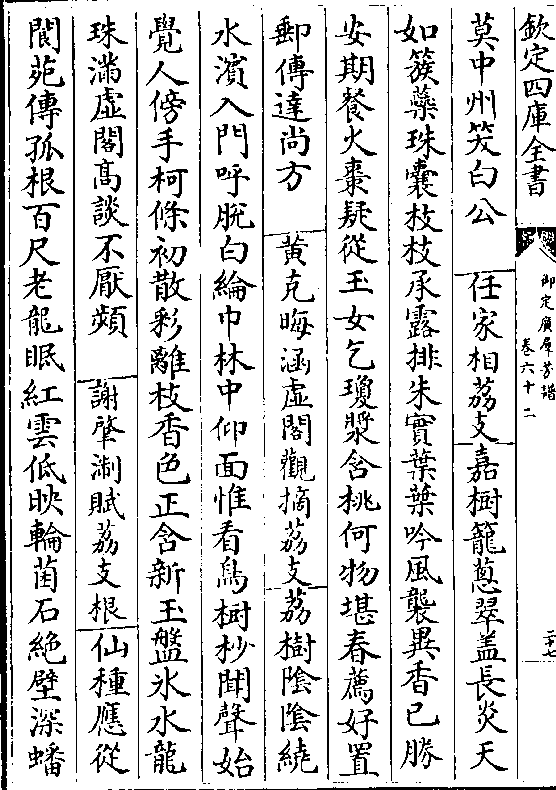 欽定四庫全書
御定廣羣芳譜 卷六十二
二十七
莫中州笑白公 任家相荔支 嘉樹籠蔥翠盖長炎天
如簇蘂珠囊枝枝承露排朱實葉葉吟風襲異香已勝
安期餐火棗疑從王女乞瓊漿含桃何物堪春薦好置
郵傳達尚方 黄克晦涵虚閣觀摘荔支 荔樹陰陰繞
水濱入門呼脱白綸巾林中仰面惟看鳥樹杪聞聲始
覺人傍手柯條初散彩離枝香色正含新玉盤氷水龍
珠滿虚閣髙談不厭頻 謝肇淛賦荔支根 仙種應從
閬苑傳孤根百尺老龍眠紅雲低映輪菌石絶壁深蟠